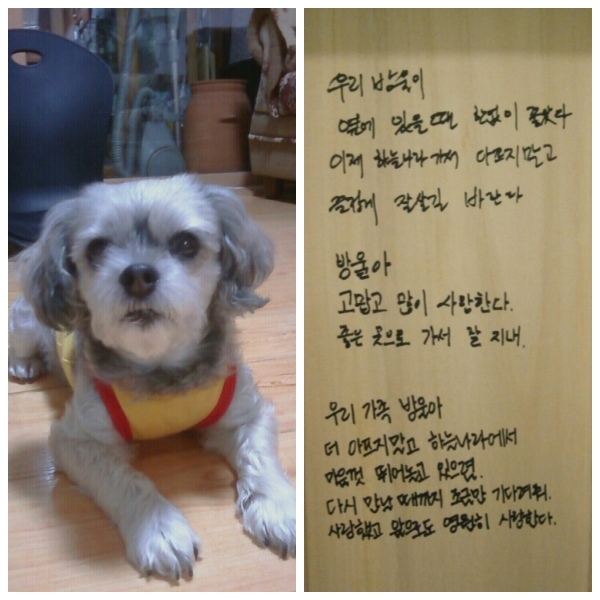 우리 방울이
옆에 있을때 한없이 좋았다
이제 하늘나라가서 다프지말고
잘살길 바란다
방울아
고맙고 많이 사랑한다.
좋은 곳으로 가서 잘 지내.
우리 가족 방울아
더 아프지말고 하늘나라에서
마음껏 뛰어놀고 있으렴.
다시 만날때까지 조금만 기다려줘.
사랑했고 앞으로도 영원히 사랑한다.